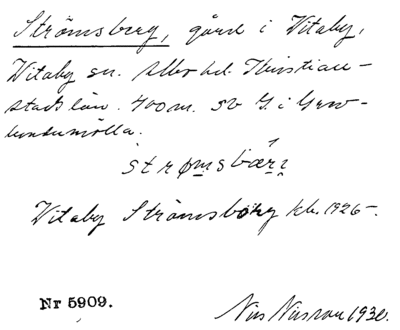 Strömsberg, gård i Vitaby,
Vitaby sn. Albo hd. Kristian-
stads län. 400 m. sv G. i Grev-
lundamölla.
strømsbæri
Vitaby Strömsborg kb. 1926-.
Nr 5909. Nils Nilsson 1930.